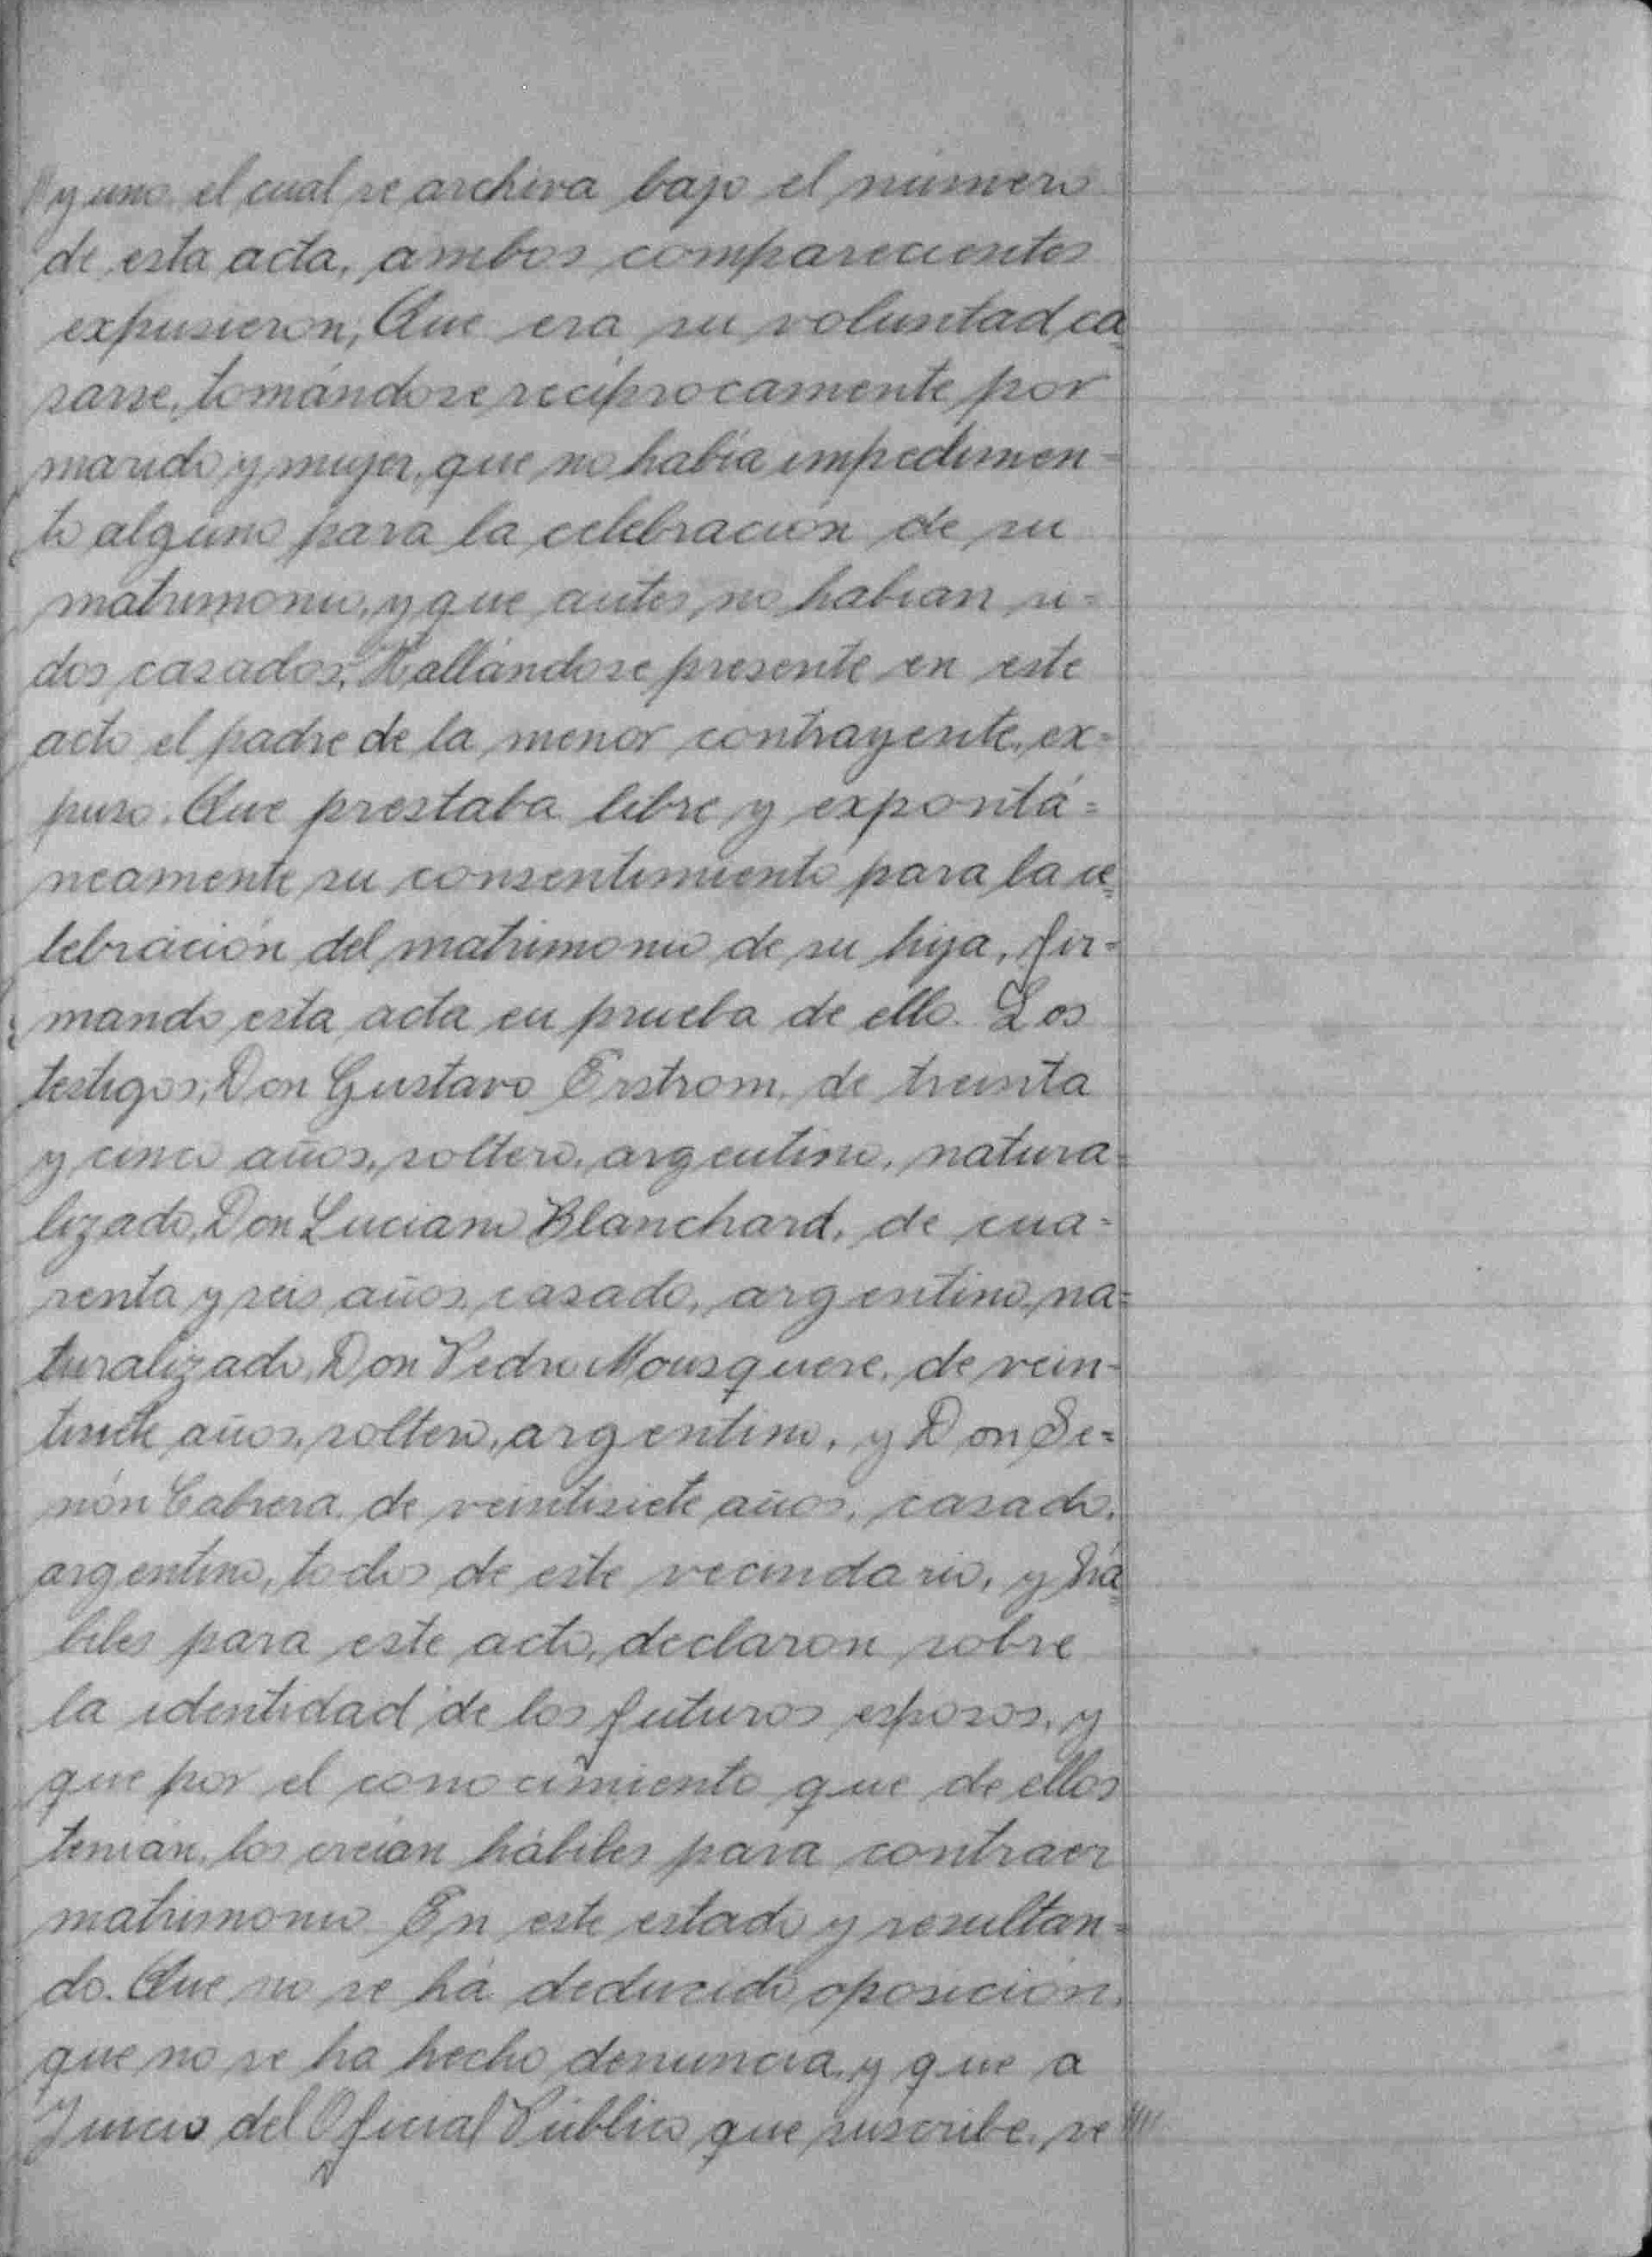 // y uno, el cual se archiva bajo el número
de esta acta, ambos comparecientes
expusieron, Que era su voluntad ca=
sarse, tomándose recíprocamente por
marido y mujer, que no había impedimen-
to alguno para la celebración de su
matrimonio, y que antes no habían si=
dos casados. Hallándose presente en este
acto el padre de la menor contrayente, ex=
puso. Que prestaba libre y expontá=
neamente su consentimiento para la ce=
lebración del matrimonio de su hija, fir=
mando esta acta en prueba de ello. Los
testigos, Don Gustavo Erstrom, de treinta
y cinco años, soltero, argentino, natura=
lizado, Don Luciano Blanchard, de cua=
renta y seis años, casado, argentino, na=
turalizado, Don Pedro Mousquere, de vein-
tisiete años, soltero, argentino, y Don Se=
nón Cabrera, de veintisiete años, casado,
argentino, todos de este vecindario, y há=
biles para este acto, declaron sobre
la identidad de los futuros esposos, y
que por el conocimiento que de ellos
tenían, los creían hábiles para contraer
matrimonio. En este estado y resultan=
do. Que no se há deducido oposición,
que no se ha hecho denuncia, y que a
Juicio del Oficial Público que suscribe, se ////